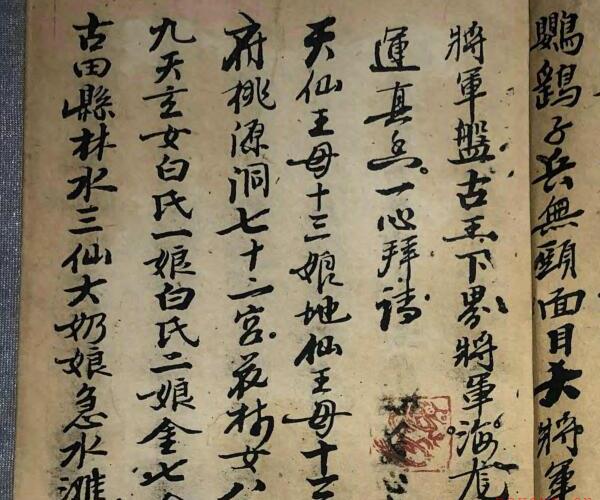 鸚鵡子兵無頭面目大將軍
將軍盤古王下界將軍海
運真香一心拜請
天仙王母十三娘地仙王母十
府桃源洞七十二宮花林女八
九天玄女白氏一娘白氏二娘金七
古田縣林水三仙大奶娘急水灘